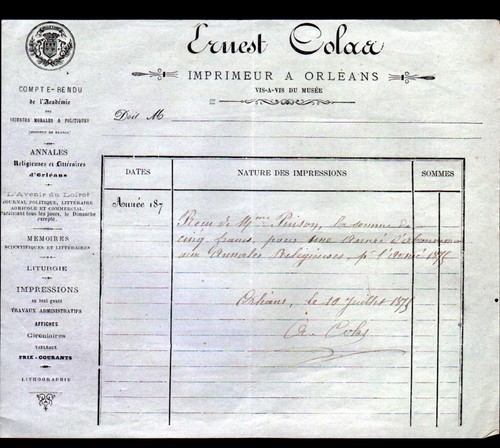 Ernest Colas
IMPRIMEUR A ORLÉANS
VIS-A-VIS DU MUSÉE
Doit M
COMPTE-RENDU
de l'Académie
DES
SCIENCES MORALES & POLITIQUES
(INSTITUT DE FRANCE)
ANNALES
Religieuses et Littéraires
d'Orléans
L'Avenir du Loiret
JOURNAL POLITIQUE, LITTÉRAIRE
AGRICOLE ET COMMERCIAL
Paraissant tous les jours, le Dimanche
excepté.
MÉMOIRES
SCIENTIFIQUES ET LITTÉRAIRES
LITURGIE
IMPRESSIONS
en tout genre
TRAVAUX ADMINISTRATIFS
AFFICHES
Circulaires
TABLEAUX
PRIX-COURANTS
LITHOGRAPHIE
DATES
NATURE DES IMPRESSIONS
SOMMES
Année 187
Reçu de Mme la somme de
cinq francs, pour une année d'abonnement
aux Annales Religieuses, pr l'année 1875
Orléans, le 10 Juillet 1875
E. Colas